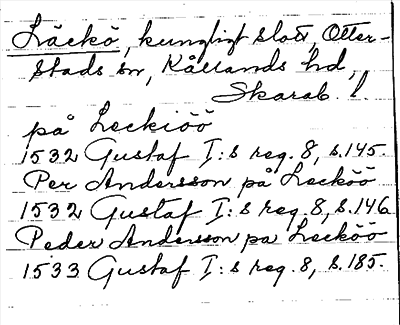 Läckö, kungligt slott, Otter-
stads sn, Kållands hd,
Skarab. l.
på Leckiöö
1532 Gustaf I:s reg. 8, s. 145.
Per Andersson på Lecköö
1532 Gustaf I:s reg. 8, s. 146
Peder Andersson pa Lecköö
1533 Gustaf I:s reg. 8, s. 185.